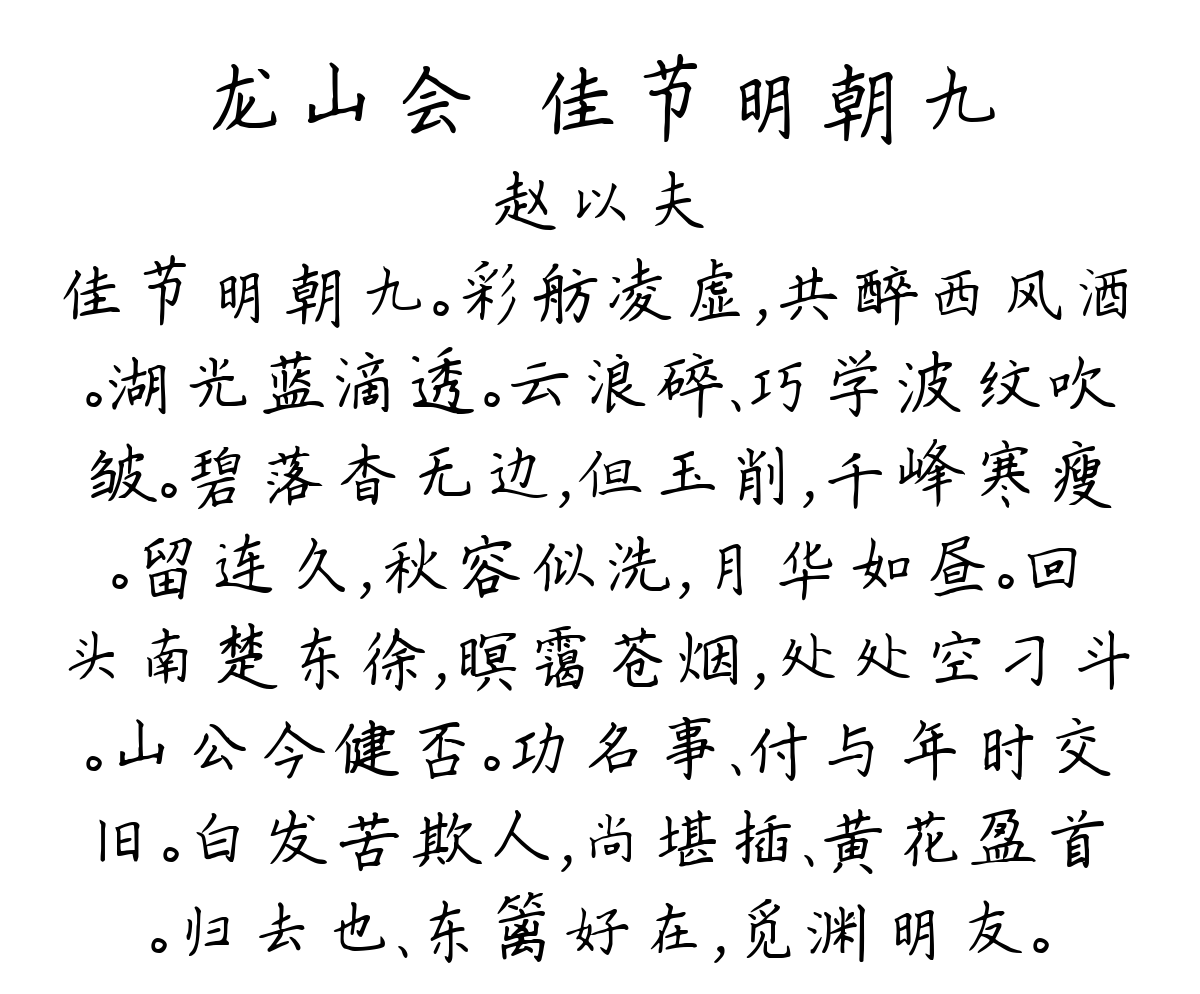 龙山会 佳节明朝九
赵以夫
佳节明朝九。彩舫凌虚,共醉西风酒
。湖光蓝滴透。云浪碎、巧学波纹吹
皱。碧落杳无边,但玉削,千峰寒瘦
。留连久,秋容似洗,月华如昼。回
头南楚东徐,暝霭苍烟,处处空刁斗
。山公今健否。功名事、付与年时交
旧。白发苦欺人,尚堪插、黄花盈首
。归去也、东篱好在,觅渊明友。